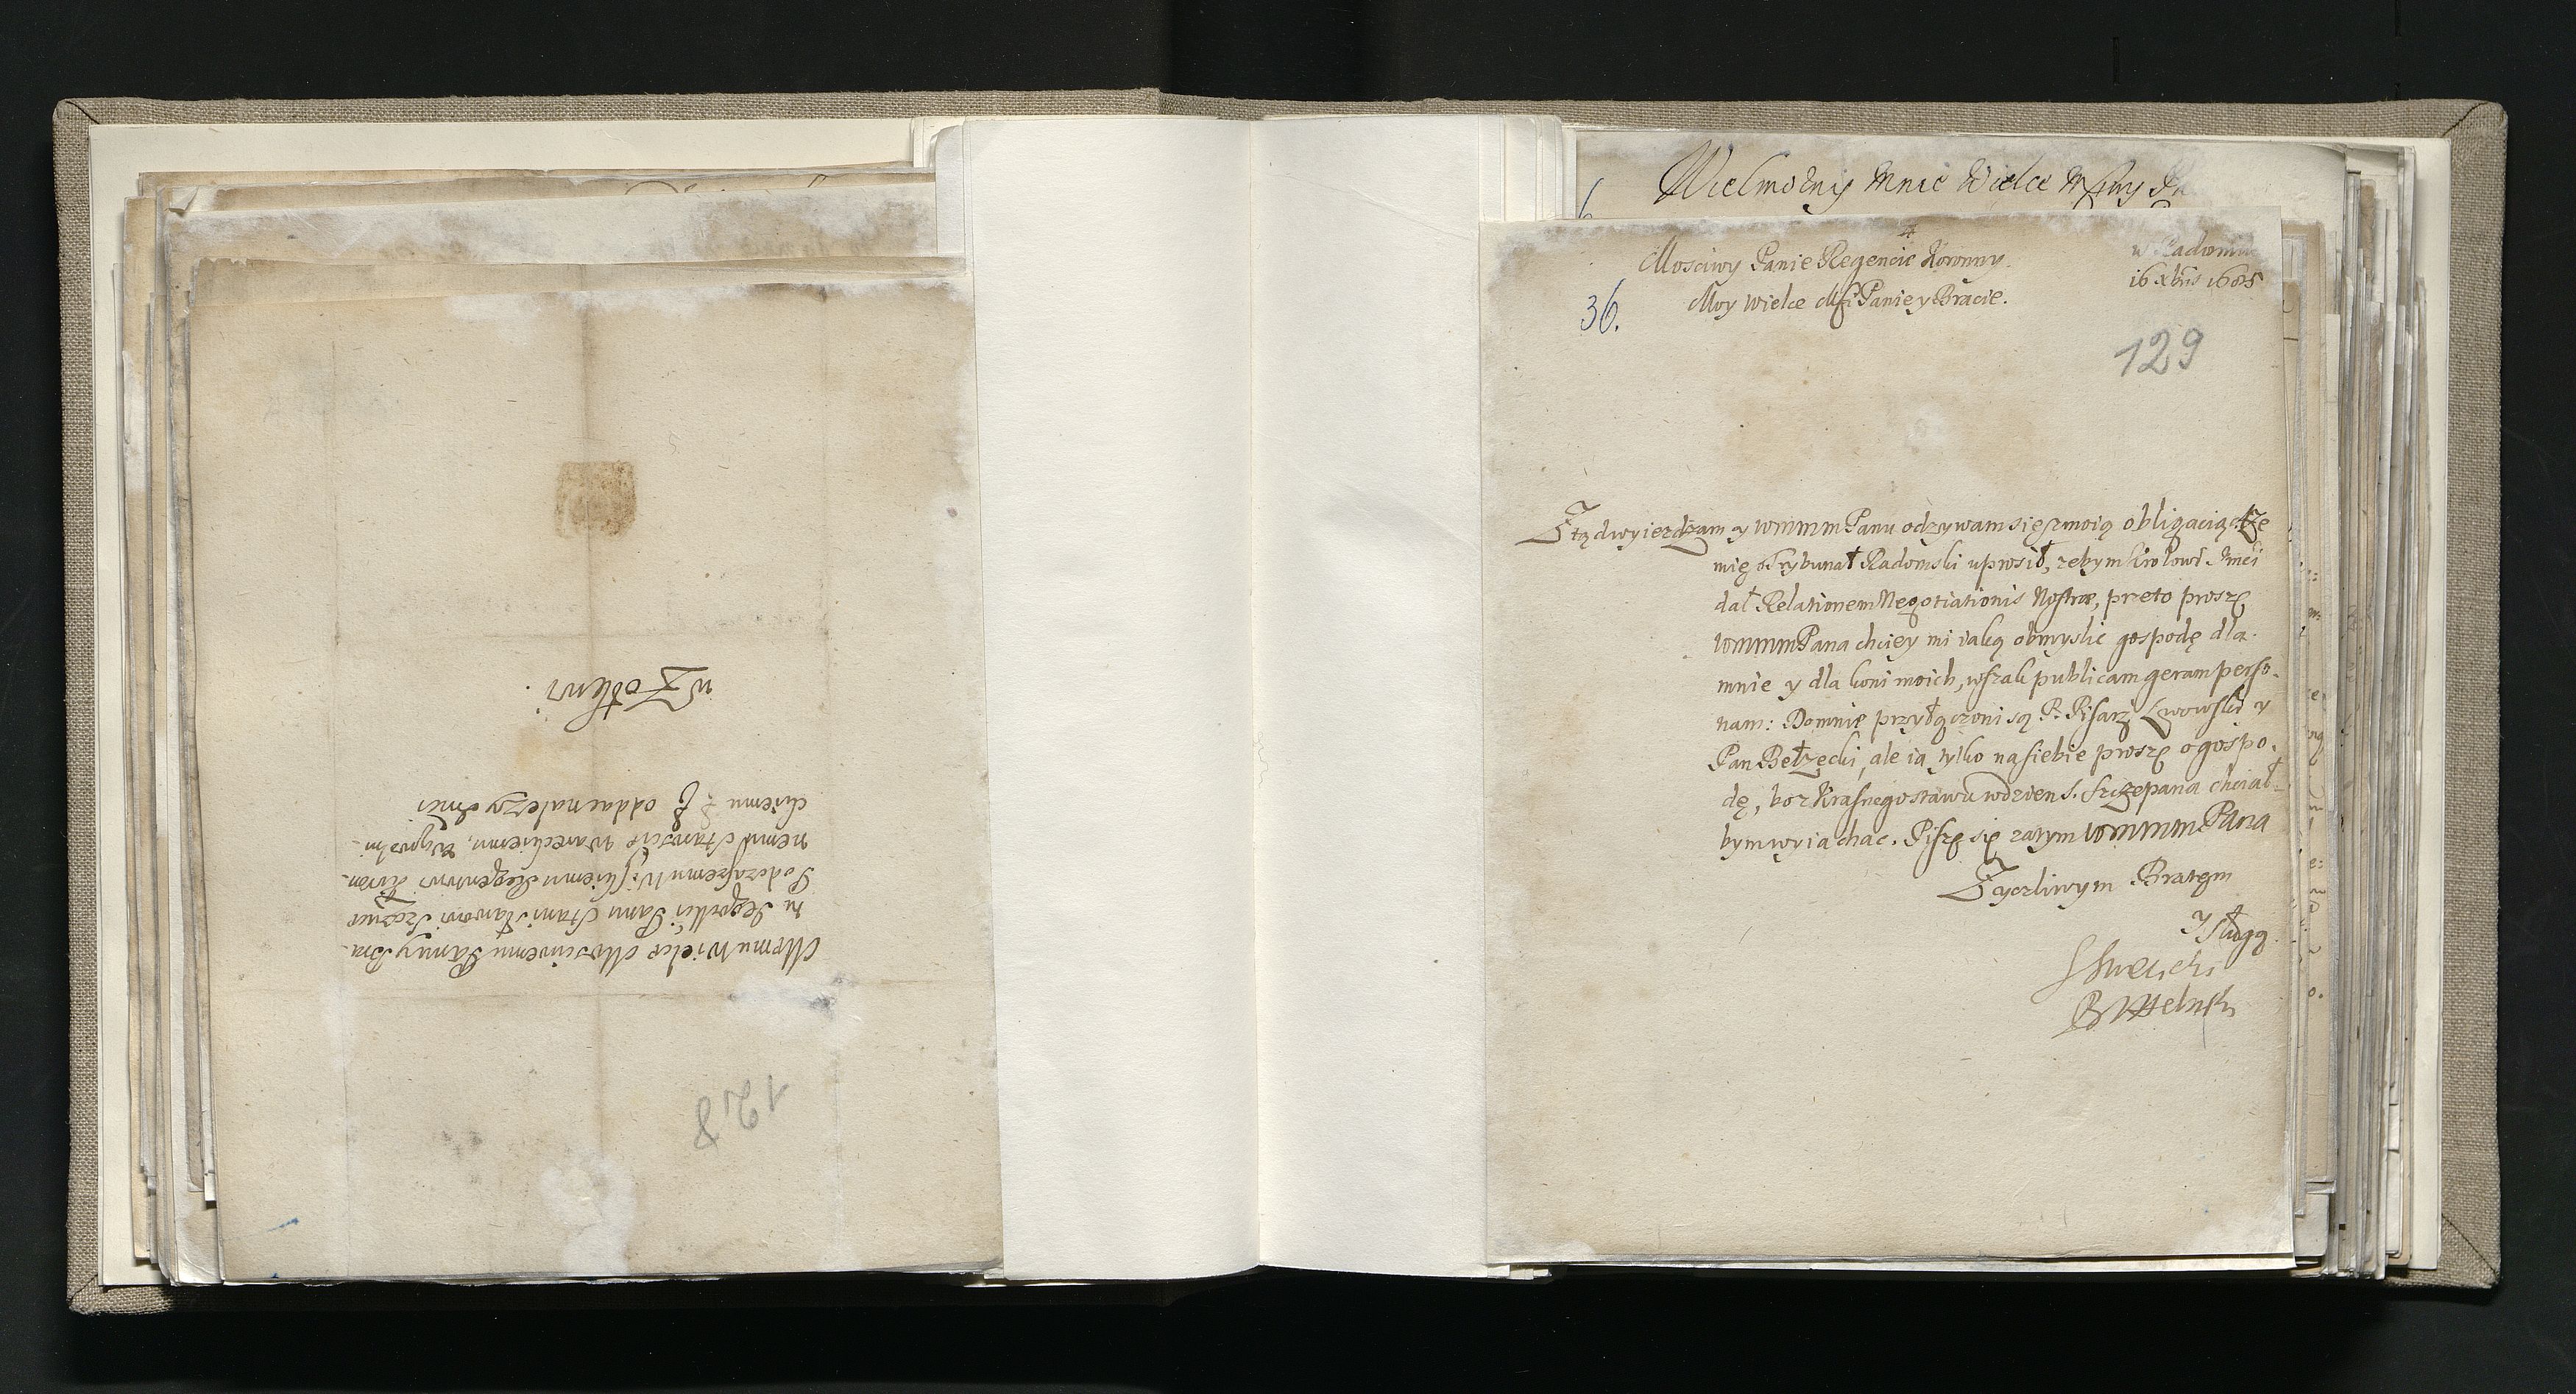 Moemu Wielce Mosciwemu Panu y Bra-
tu Jegomsci Panu Stanisławowi Szczuce
Podczaszemu Wiskiemu Regentowi Koron-
nemu Staroscie Wareckiemu,
oddac nalezy
w Zołkwi.
128
Wielmozny Mnie Wielce Msciwy
36.
Mosciwy Panie Regencie Koronny.
Moy Wielce Msci Panie y Bracie.
w Radomiu
16 Xbris 1685
129
Ztąd wyiezdzam y WMMM Panu odzywam się z moią obligacią, ze
mię Trybunał Radomski uprosił, zebym Krolowi Jmci
dał Relationem Negotiationis Nostræ, preto proszę
WMMMPana chciey mi iaką obmyslic gospodę dla
mnie y dla koni moich, wszak publicam geram perso-
nam: Do mnie przyłączoni są P. Pisarz Lwowski y
Pan Bełzecki, ale ia tylko na siebie proszę o gospo-
dę, bo z Krasnegostawu w dzien S. Szczepana chciał-
bym wyiachac. Piszę się zatym WMMMPana
Zyczliwym Bratem
y Sługą